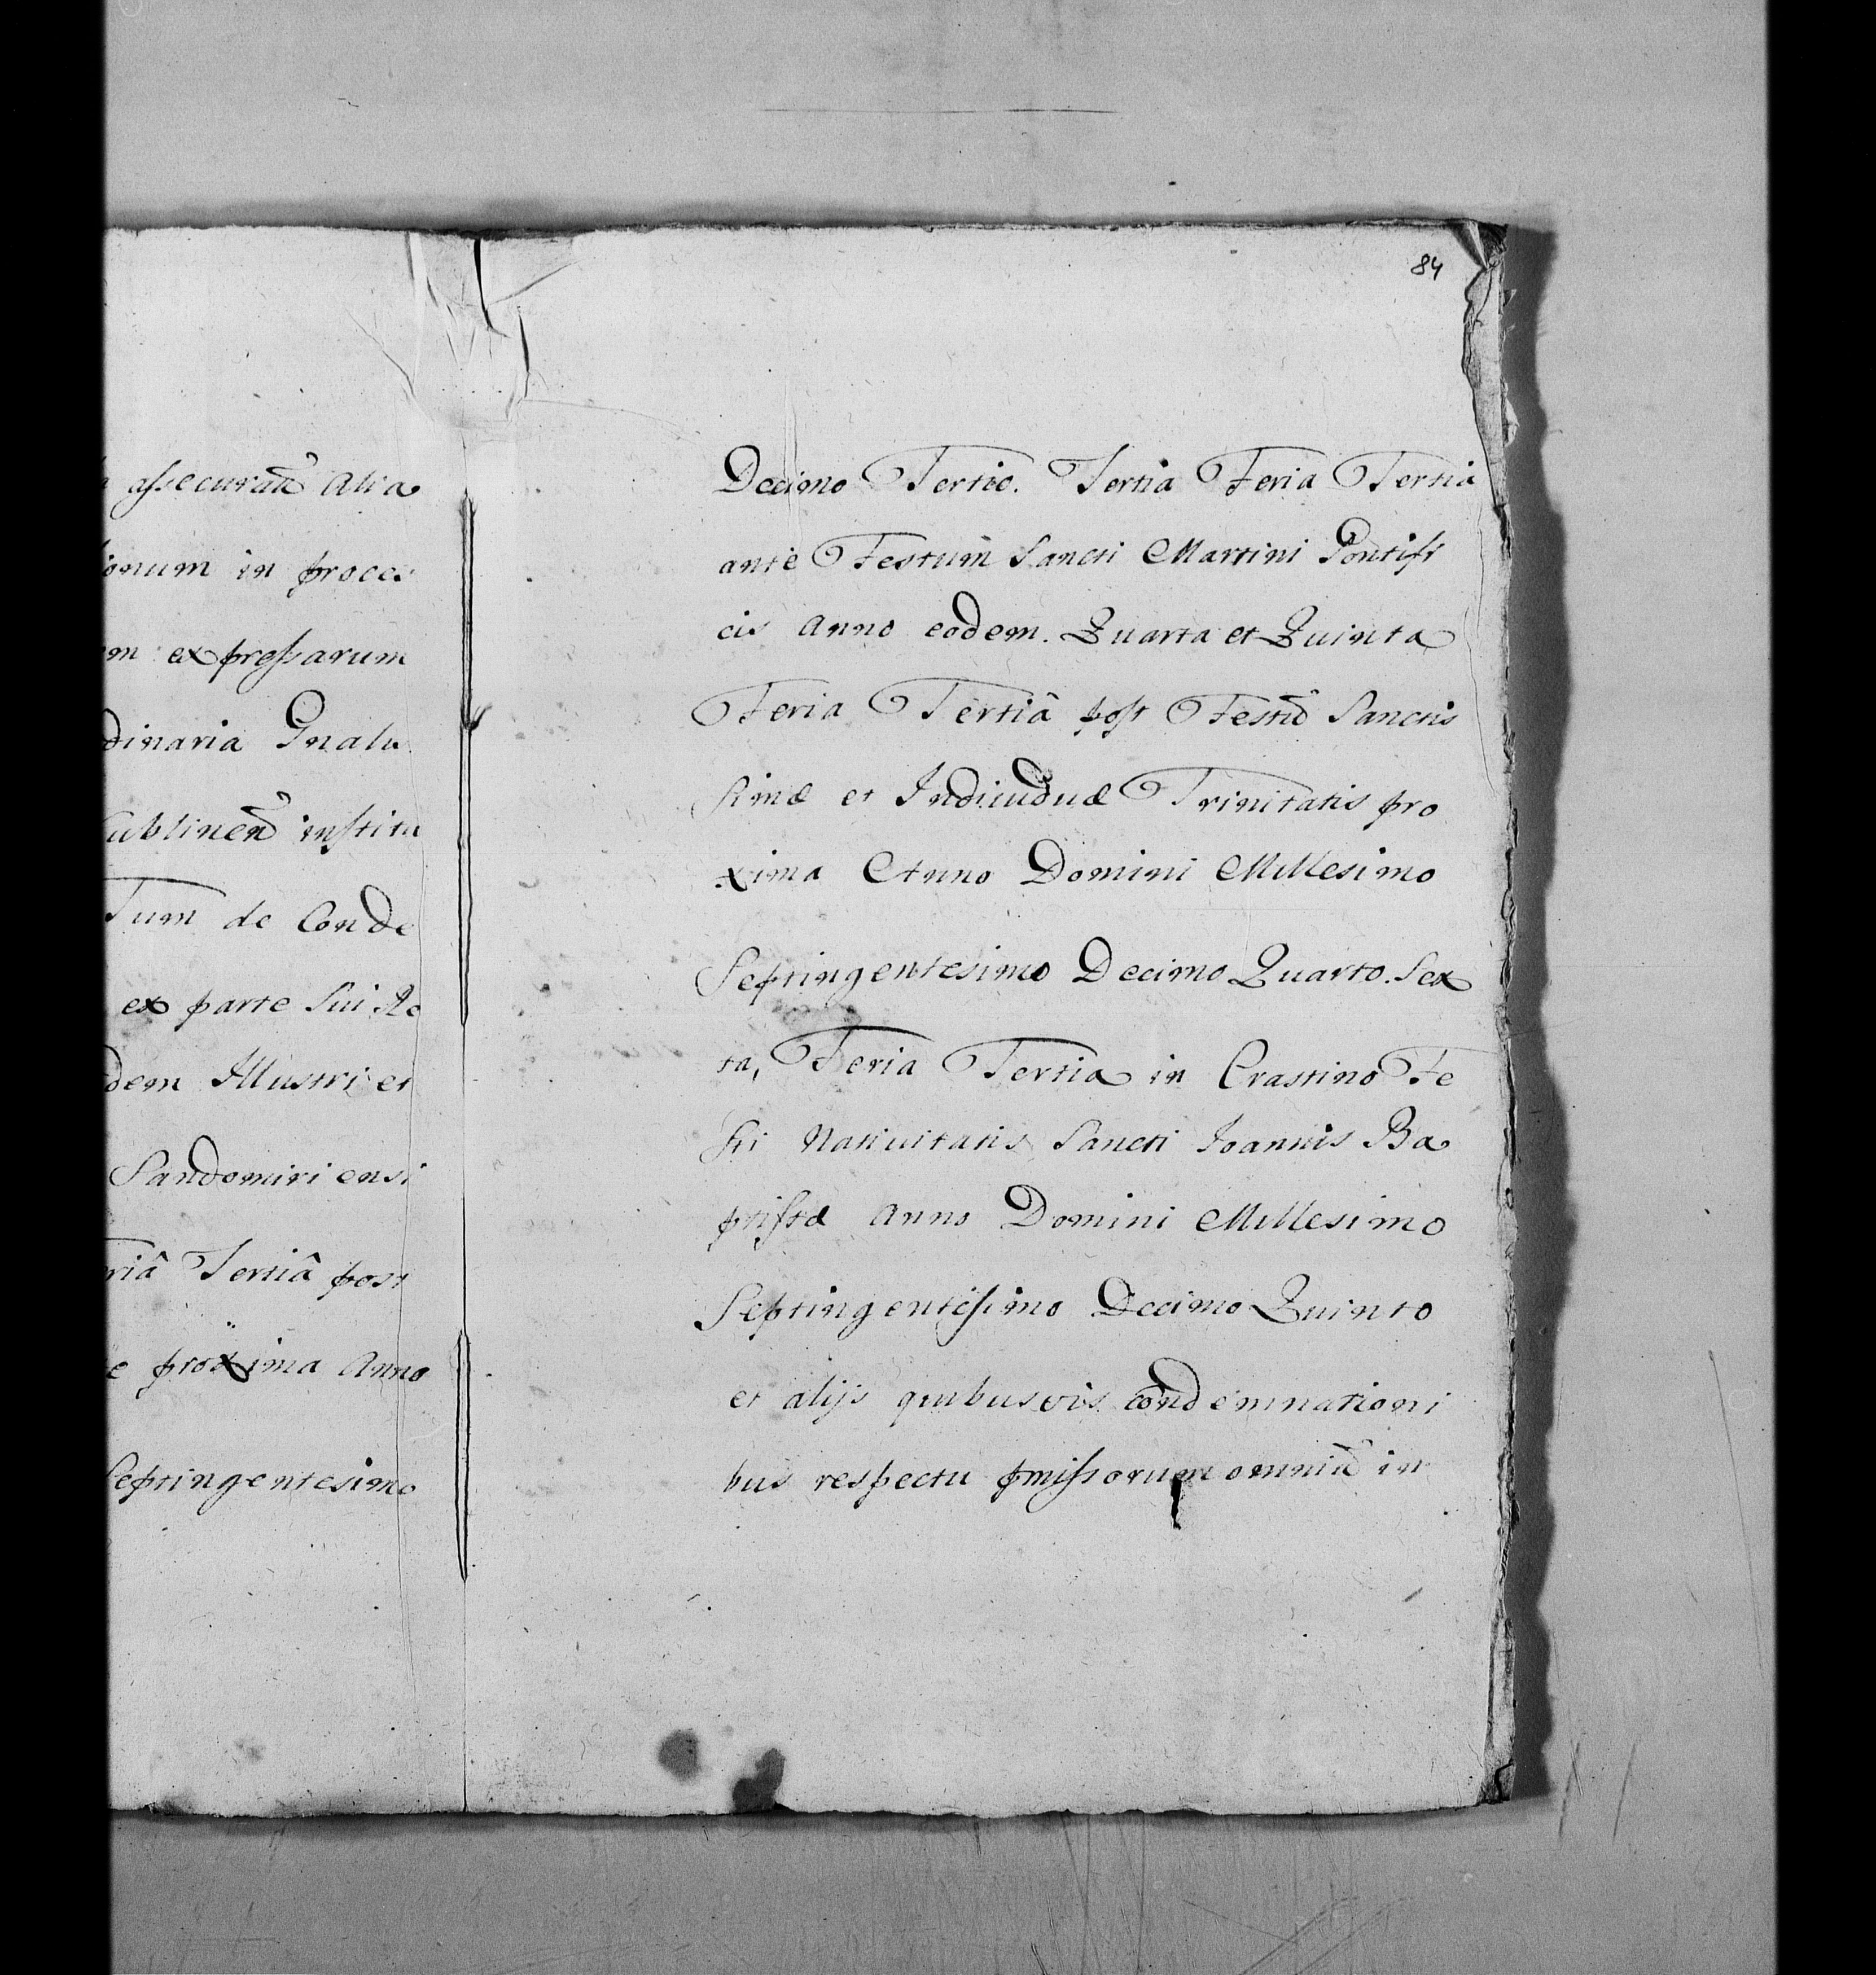 assecuran͠ alia
ionum in proces
m expressarum
dinaria Gnalu
Lublinen͠ institu
Tum de Conde
ex parte Sui Re
dem Illustri et
Sandomiriensi
riâ Tertiâ post
e proxima Anno
Septingentesimo
84
Decimo Tertio. Tertia Feria Tertia
ante Festum Sancti Martini Pontifi
cis Anno eodem. Quarta et Quinta
Feria Tertiâ post Festũ Sanctis
simæ et Indiuiduæ Trinitatis pro
xima Anno Domini Millesimo
Septingentesimo Decimo Quarto. Sex
ta, Feria Tertia in Crastino Fe
sti Natiuitatis Sancti Joannis Ba
ptistæ Anno Domini Millesimo
Septingentesimo Decimo Quinto
et alijs quibusvis condemnationi
bus respectu pmissorum omniũ in